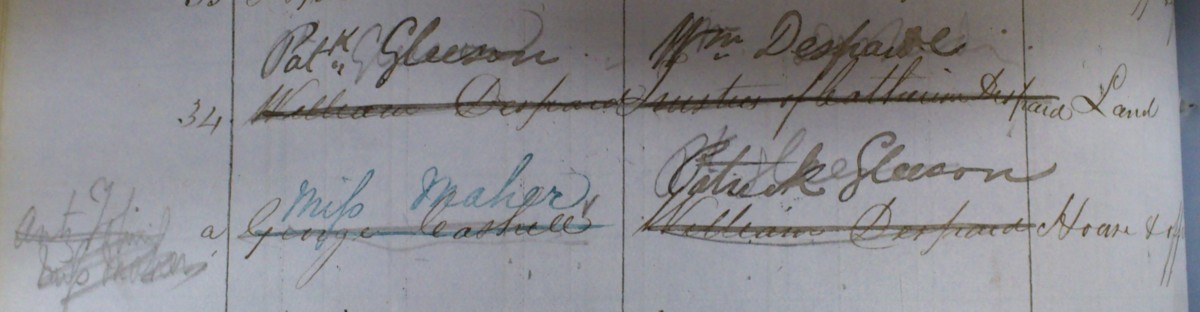 Patk Gleeson Wm Despard
34 William Despard Trustees of Catherine Despard Land
Miss Maher Patrick Gleeson
a George Cashell William Despard House & off
Miss Maher